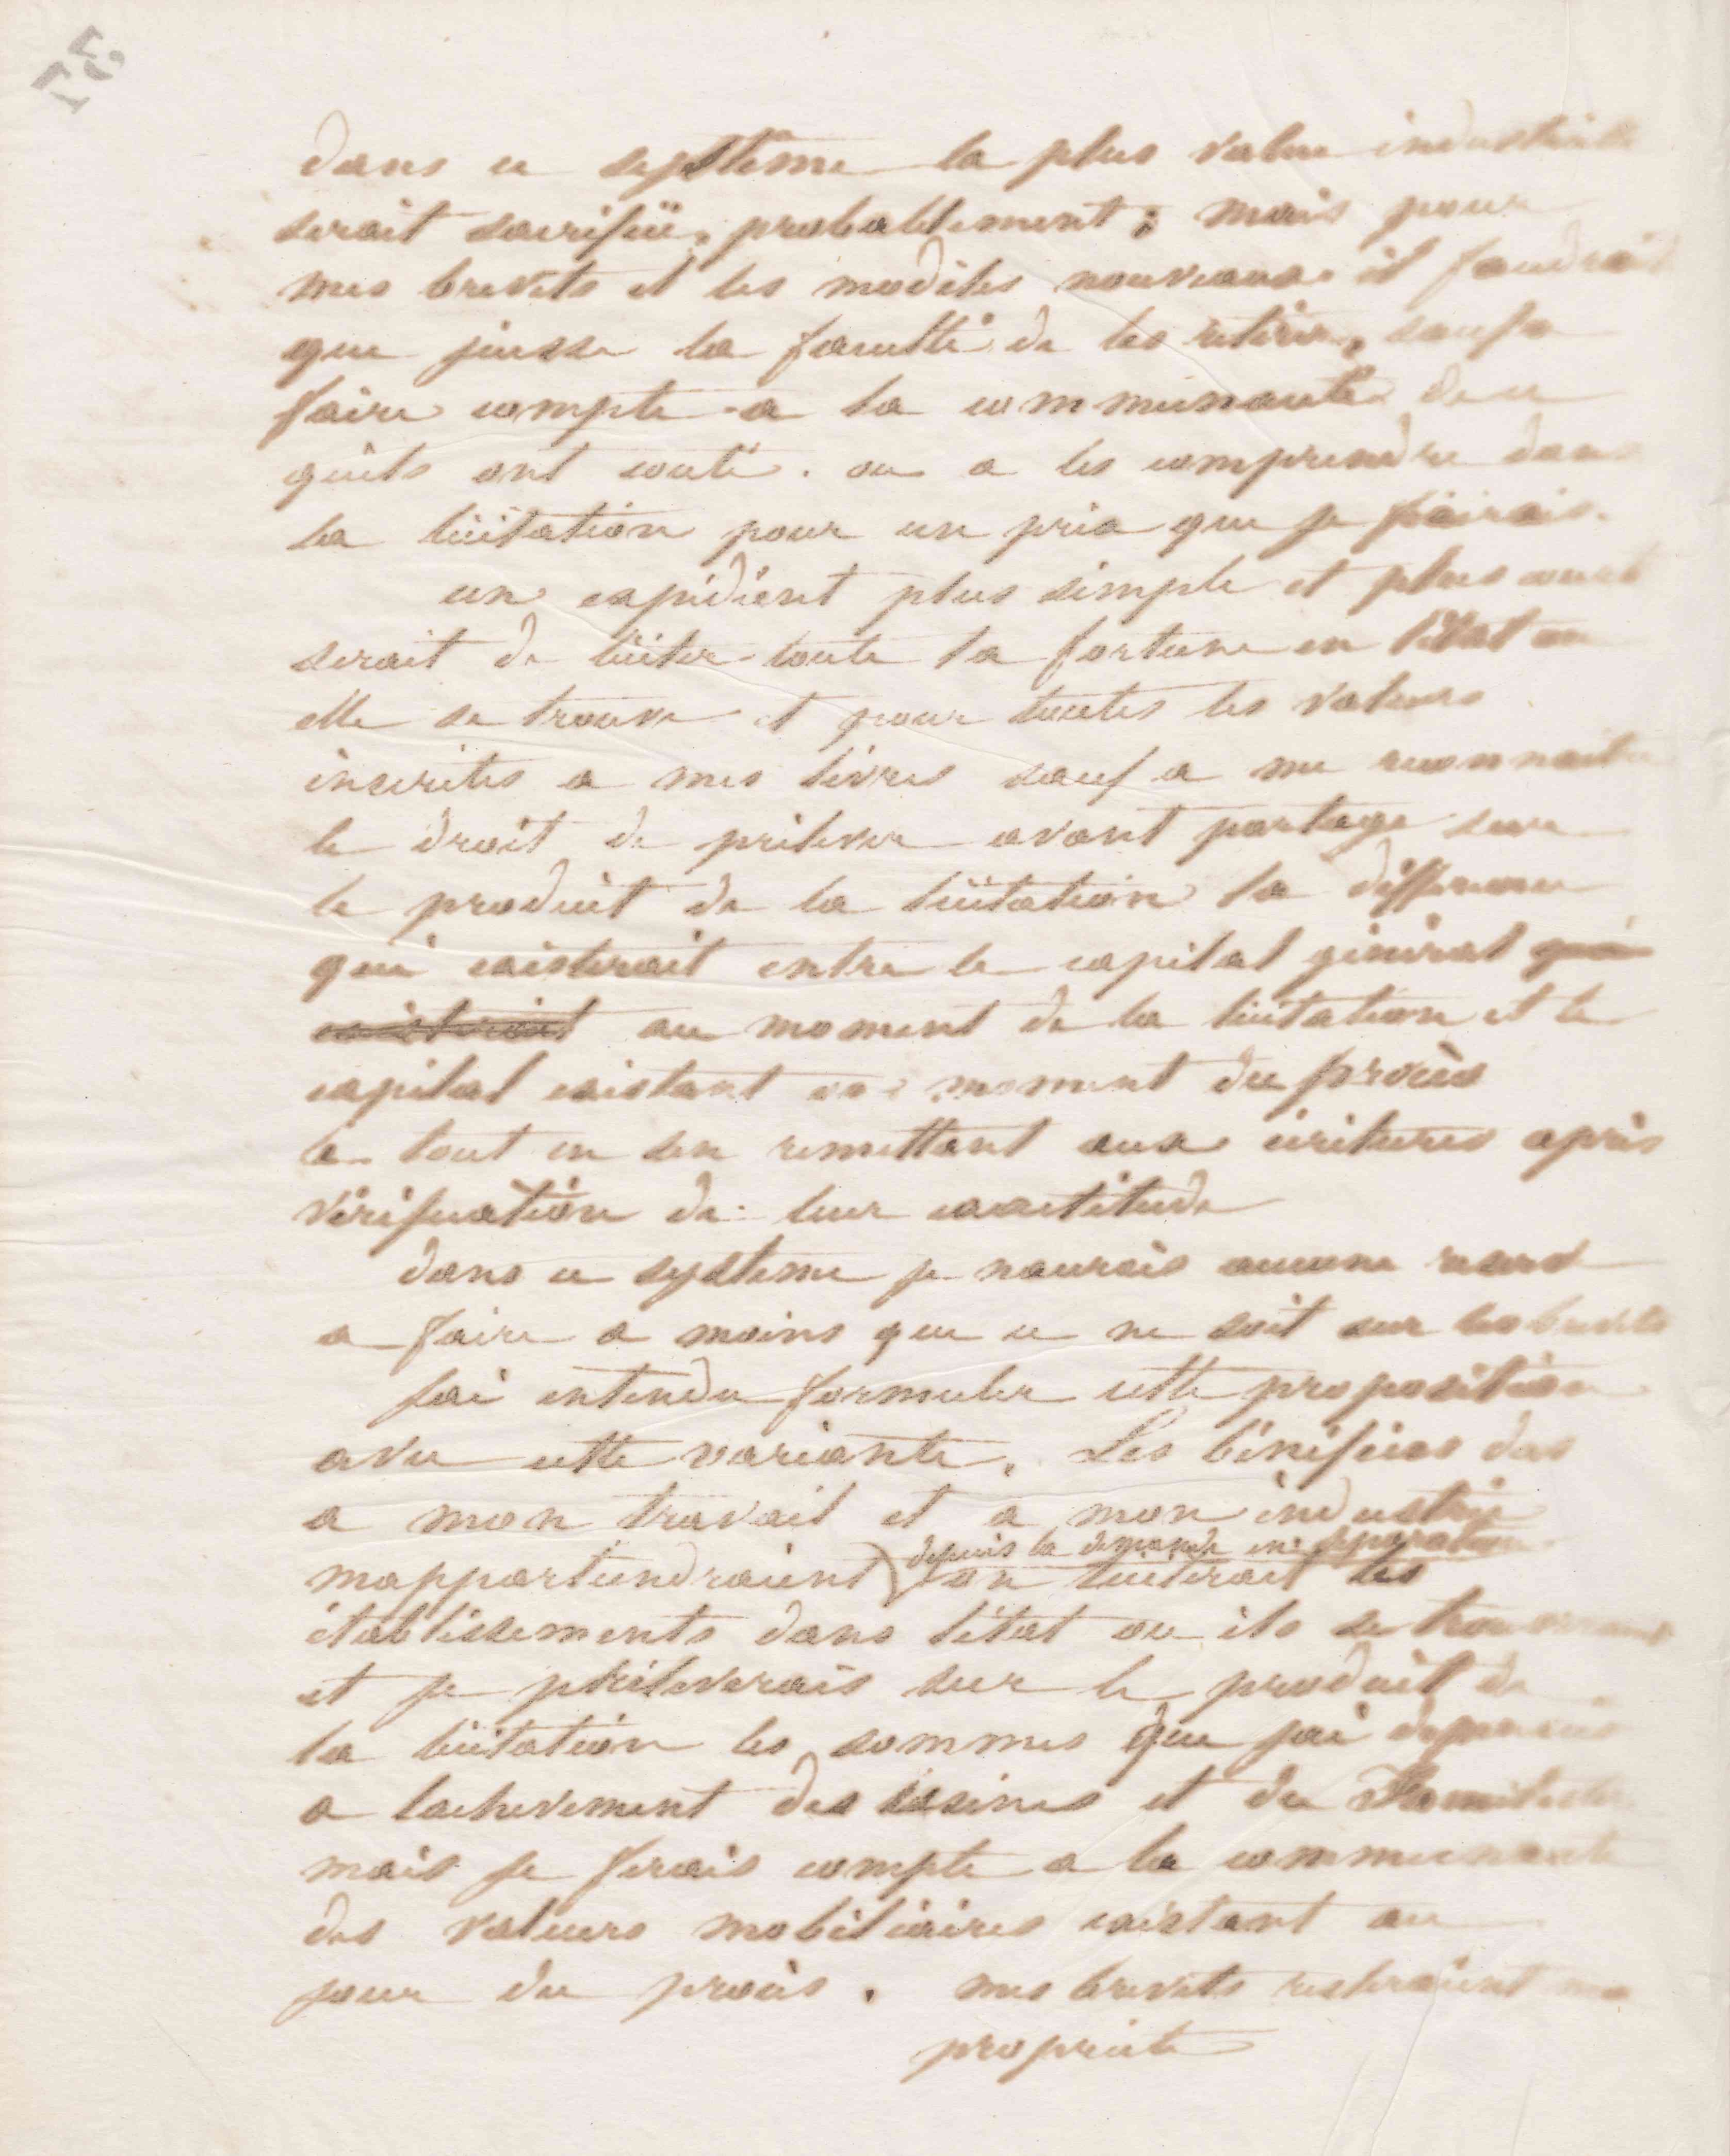 37
dans ce système la plus value industrielle
serait sacrifiée, probablement; mais pour
mes brevets et les modèles nouveaux il faudrait
que jeusse la faculté de les retirer, sauf a
faire compte a la communauté de ce
quils ont couté. ou a les comprendre dans
la licitation pour un prix que je fixirais.
un expédient plus simple et plus court
serait de liciter toute la fortune en létat ou
elle se trouve et pour toutes les valeurs
inscrites a mes livres sauf a me reconnaitre
le droit de prélever avant partage sur
le produit de la licitation la différence
qui existerait entre le capital général qui
existerait au moment de la licitation et le
capital existant au moment du procès
le tout en sen remettant aux écritures après
vérification de leur exactitude
dans ce système je naurais aucune réserve
a faire a moins que ce ne soit sur les brevets
jai entendu formuler cette proposition
avec cette variante. Les bénéfices dus
a mon travail et a mon industrie
depuis la demande en séparation
mappartiendraient on liciterait les
établissements dans létat ou ils se trouveraient
et je prélèverais sur le produit de
la licitation les sommes que jai dépensées
a lachevement des usines et du Familistère
mais je ferais compte a la communauté
des valeurs mobiliaires existant au
jour du procès. mes brevets resteraient ma
propriété